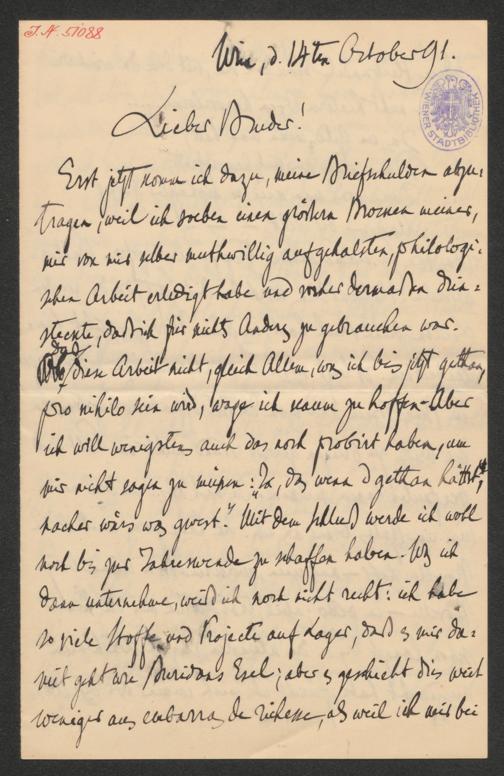 J.N. 51088
Wien, d. 14ten October 91.
WIENER STADTBIBLIOTHEK
Lieber Bruder!
Erst jetzt komm ich dazu, meine Briefschulden abzu-
tragen, weil ich soeben einen größern Brocken meiner,
mir von mir selber muthwillig aufgehalsten, philologi-
schen Arbeit erledigt habe und vorher dermaßen drin-
steckte, daß ich für nichts Anders zu gebrauchen war.
Daß diese Arbeit nicht, gleich Allem, was ich bis jetzt gethan,
pro nihilo sein wird, wage ich kaum zu hoffen. Aber
ich will wenigstens auch das noch probirt haben, um
mir nicht sagen zu müssen: "Ja, das wenn d' gethan hättst,
nacher wärs was gwest." Mit dem Schluß werde ich wohl
noch bis zur Jahreswende zu schaffen haben. Was ich
dann unternehme, weiß ich noch nicht recht: ich habe
so viele Stoffe und Projecte auf Lager, daß es mir da-
mit geht wie Buridans Esel; aber es geschieht dies weit
weniger aus embarras de richesse, als weil ich mir bei